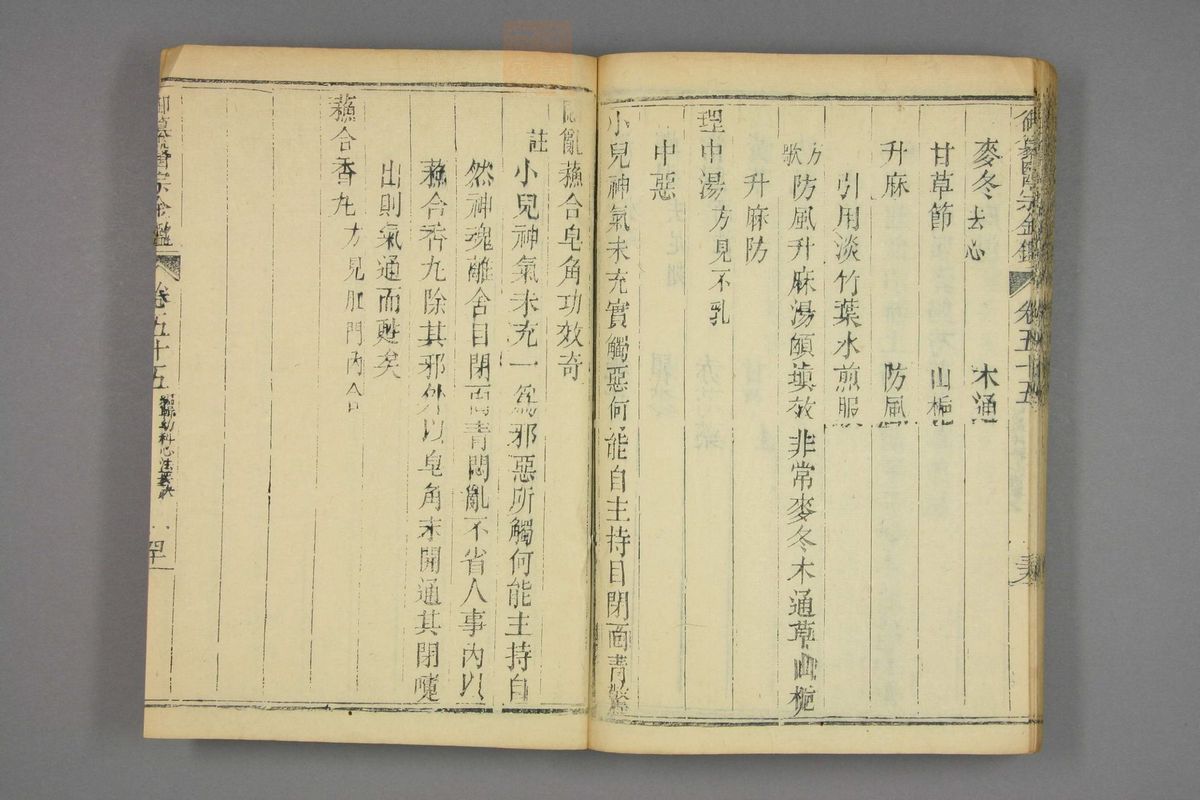 麥冬去心　木通
甘草節　山梔
升麻　防風
引用淡竹葉水煎服
方歌　防風升麻湯頗填效　非常麥冬木通草山梔
升麻防
理中湯方見不乳
中惡
小兒神氣未充實觸惡何能自主持目閉面青驚
悶亂蘓合皂角功效奇
註　小兒神氣未充一為邪惡所觸何能主持自
然神魂離舍目閉面青悶亂不省人事內以
蘓合香丸除其邪外以皂角末開通其閉嚏
出則氣通而甦矣
蘓合香丸方見肛門內合
御纂醫宗金鑑　卷五十五　編輯幼科心法要訣